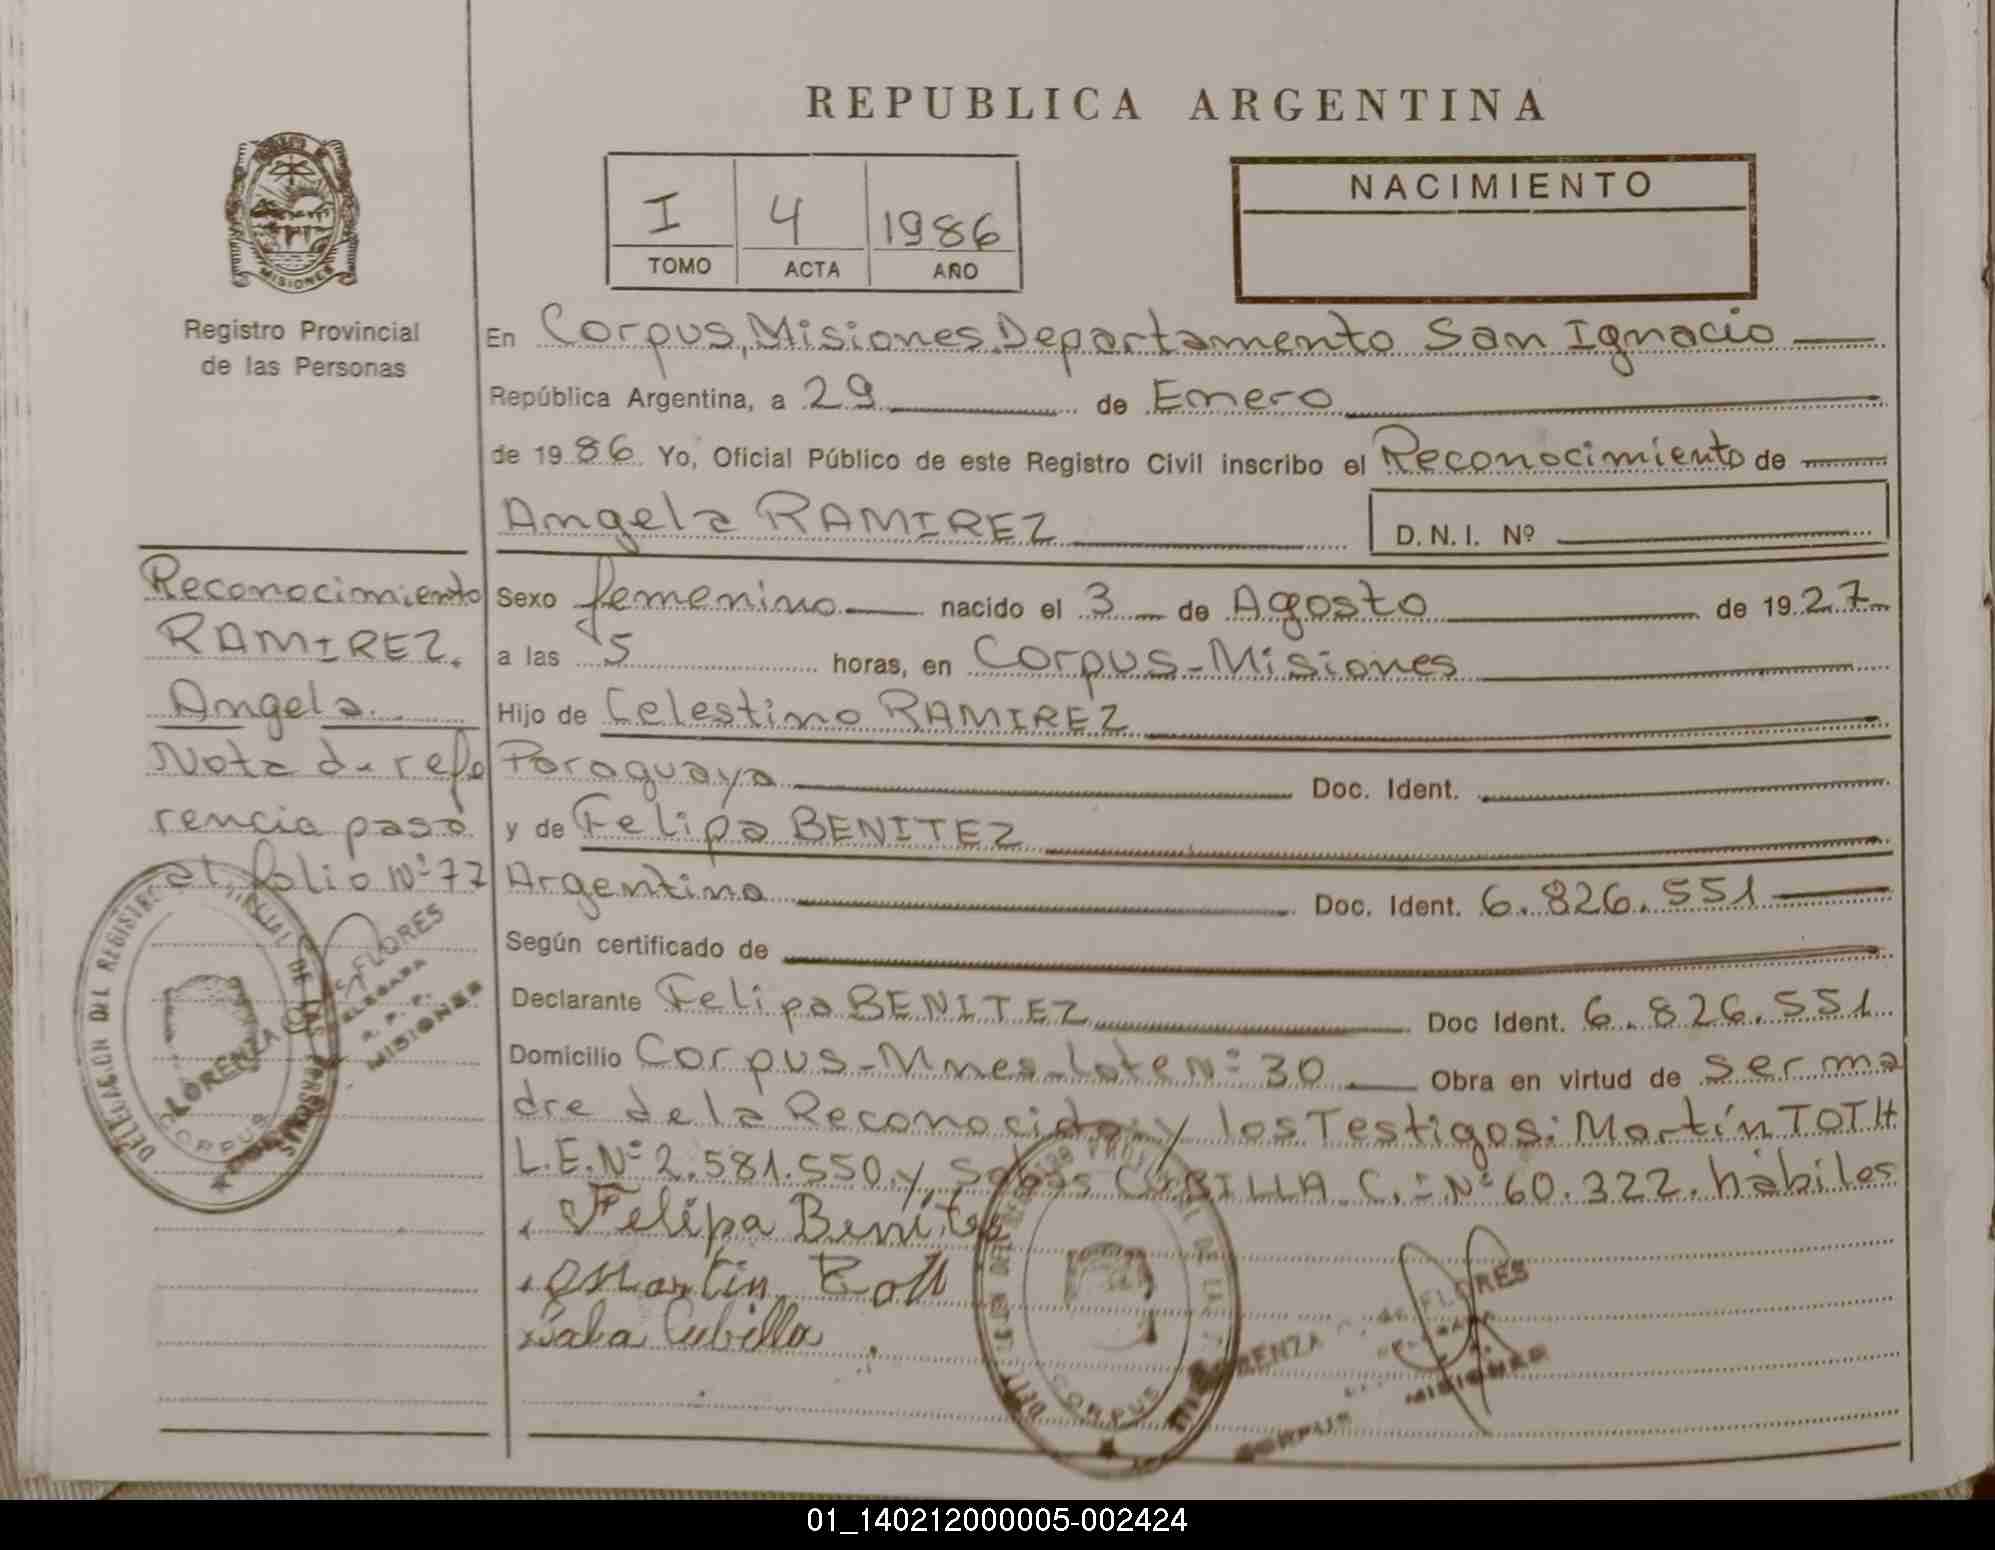 REPUBLICA ARGENTINA
I 4 1986
TOMO ACTA AÑO
NACIMIENTO
MISIONES
Registro Provincial
de las Personas
En Corpus, Misiones, Departamento San Ignacio
República Argentina, a 29 de Enero
de 1986. Yo, Oficial Público de este Registro Civil inscribo el Reconocimiento de
Angela RAMIREZ D.N.I. Nº
Reconocimiento
RAMIREZ.
Angela
Nota de refe
rencia pasó
al folio Nº 77
Sexo femenino nacido el 3 de Agosto de 1927
a las 5 horas, en Corpus-Misiones
Hijo de Celestino RAMIREZ
Paraguaya Doc. Ident.
y de Felipa BENITEZ
Argentina Doc. Ident. 6.826.551
Según certificado de
Declarante Felipa BENITEZ Doc Ident. 6.826.551
Domicilio Corpus-Mnes-lote Nº 30 Obra en virtud de ser ma
dre de la Reconocida y los Testigos: Martín TOTH
L.E.Nº 2.581.550 y Sabas CUBILLA C.I. Nº 60.322. hábiles
Felipa Benites
Martin Toth
Saba Cubilla
DELEGACION DEL REGISTRO PROVINCIAL DE LAS PERSONAS
CORPUS
LORENZA FLORES
DELEGADA
R. P. P.
MISIONES
DELEGACION DEL REGISTRO PROVINCIAL DE LAS
CORPUS
LORENZA de FLORES
DELEGADA
CORPUS MISIONES
01_140212000005-002424